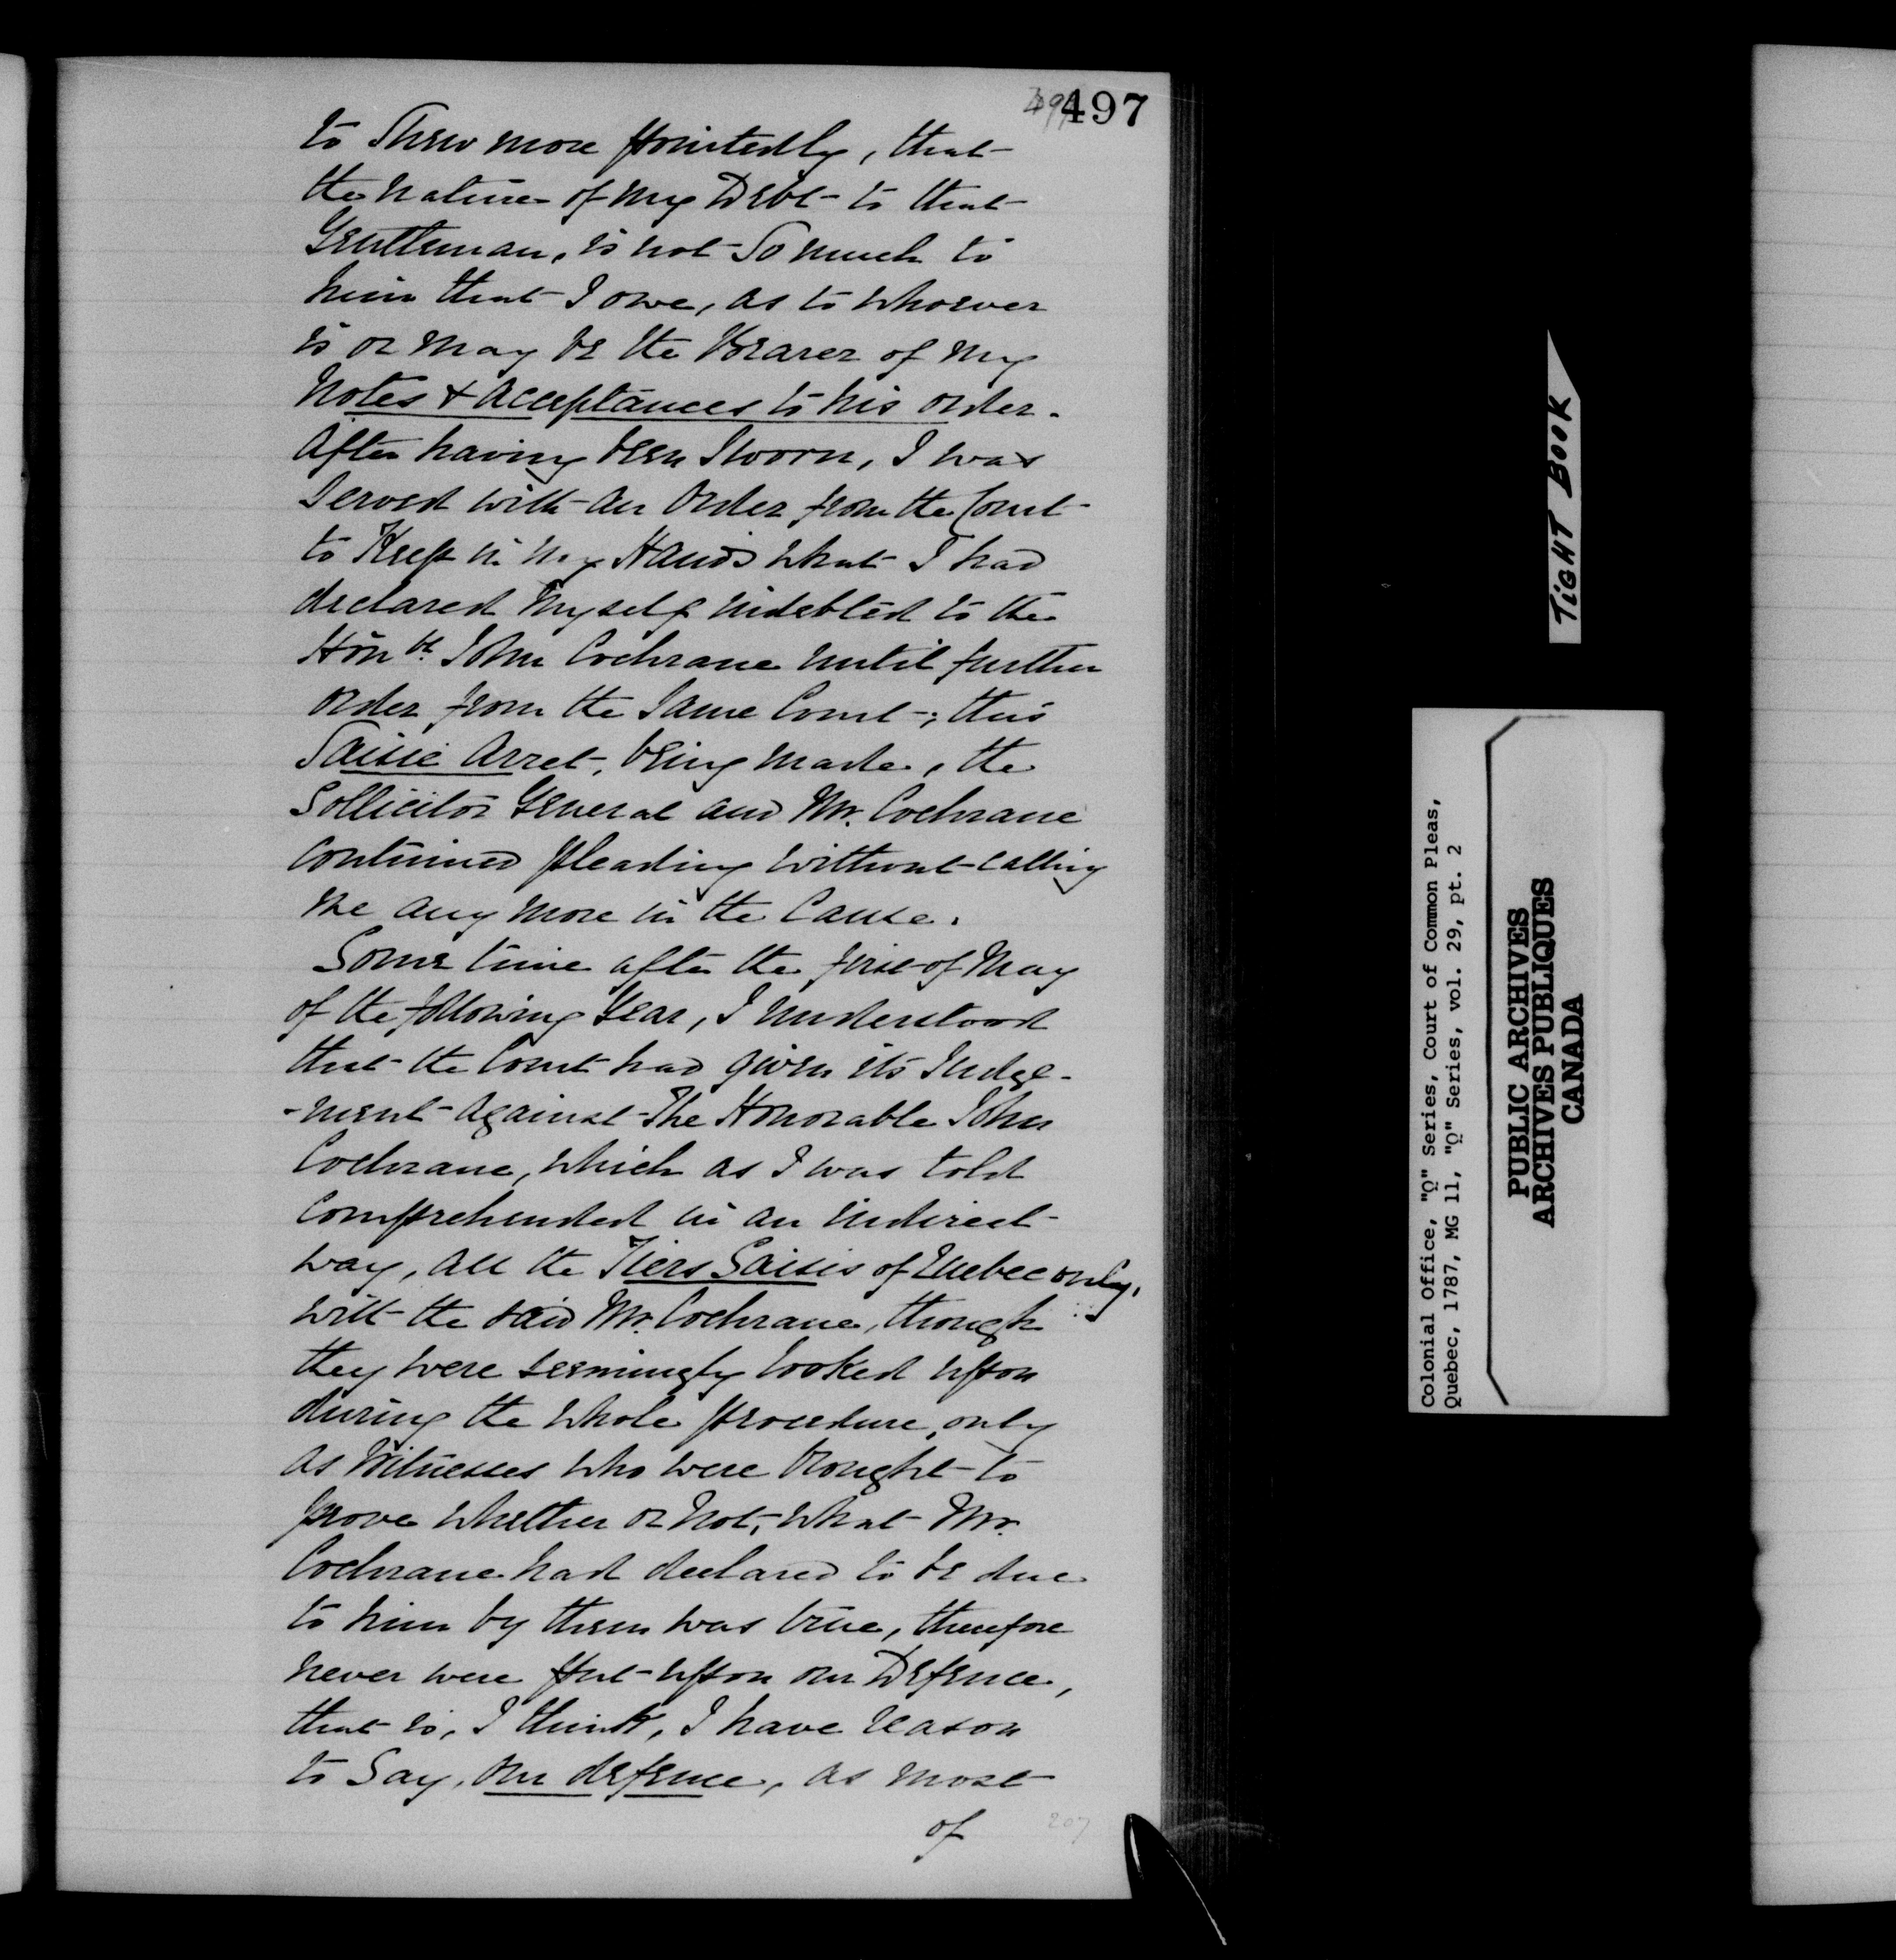 497
to Shew more pointedly, that
the nature of my Debt to that
Gentleman, is not So much to
him that I owe, as to whoever
is or may be the Bearer of my
Notes & acceptances to his order.
After having been Sworn, I was
Served with an Order from the Court
to Keep in my Hands what I had
declared Myself indebted to the
Honble. John Cochrane until further
order from the Same Court; this
Saisie Arret, being made, the
Sollicitor General and Mr. Cochrane
continued pleading without calling
me any more in the Cause.
Some time after the first of May
of the following Year, I understood
that the Court had given its Judge-
-ment against The Honorable John
Cochrane, which as I was told
comprehended in an indirect
way, all the Tiers Saisis of Quebec only,
with the said Mr. Cochrane, though
they were seemingly looked upon
during the whole procedure, only
as Witnesses who were brought to
prove whether or not, what Mr.
Cochrane had declared to be due
to him by them was true, therefore
never were put upon our Defence,
that is, I think, I have reason
to Say, our defence, as most
of
207
TIGHT BOOK
Colonial Office, "Q" Series, Court of Common Pleas,
Quebec, 1787, MG 11, "Q" Series, vol. 29, pt. 2
PUBLIC ARCHIVES
ARCHIVES PUBLIQUES
CANADA